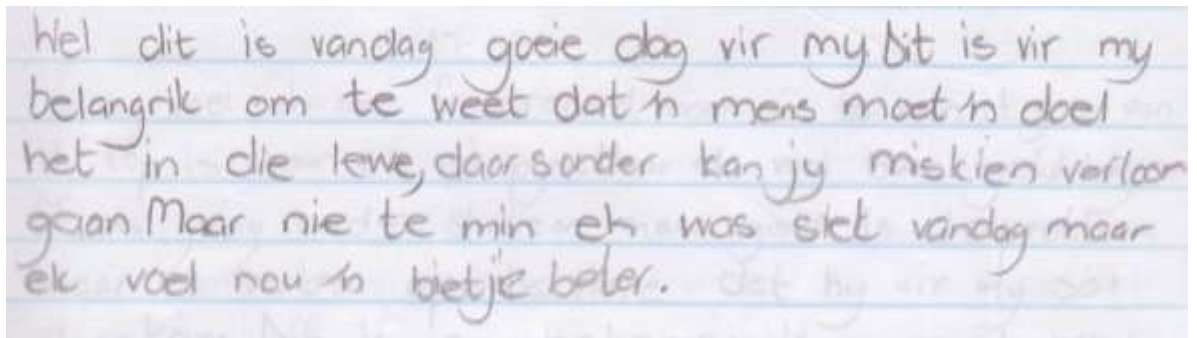 Wel dit is vandag goeie dag vir my Dit is vir my
belangrik om te weet dat 'n mens moet 'n doel
het in die lewe, daarsonder kan jy miskien verloor
gaan Maar nie te min ek was siet vandag maar
ek voel nou 'n bietjie beter.